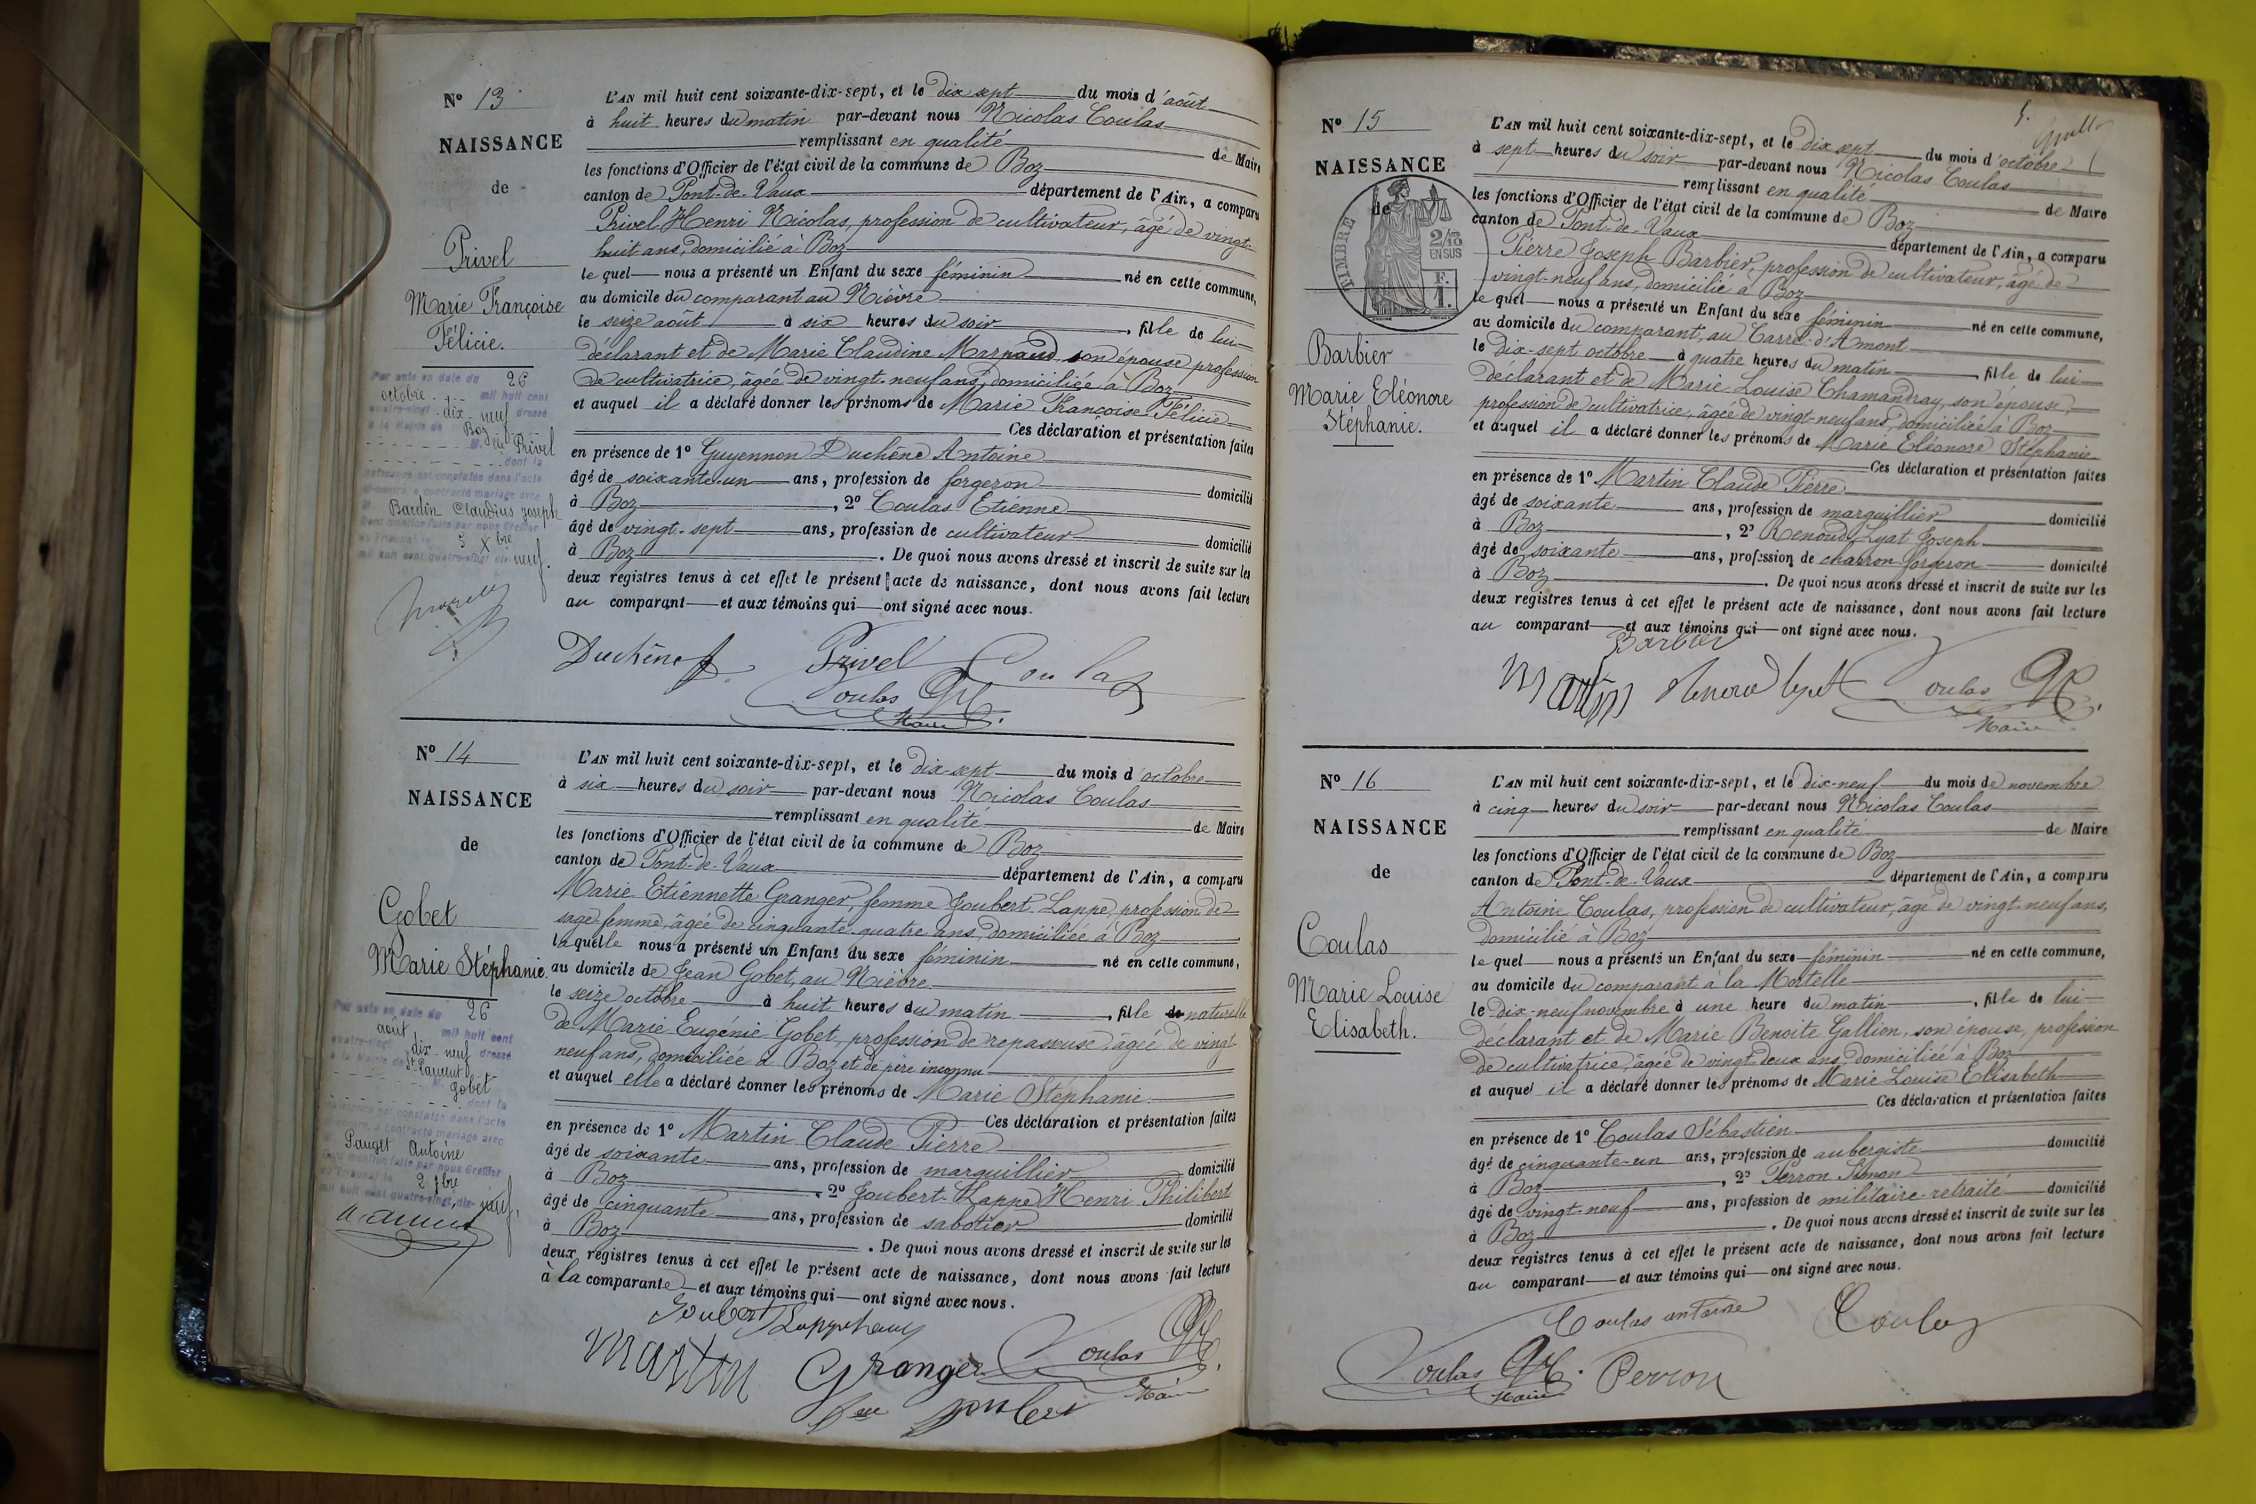 N° 13
NAISSANCE
de
Privel
Marie Françoise
Félicie.
Par acte en date du 26
octobre mil huit cent
quatre-vingt-dix-neuf dressé
à la Mairie de Boz
Privel
dont la
naissance est constatée dans l'acte
ci-contre, a contracté mariage avec
Bardin Claudius Joseph
3 Xbre
mil huit cent quatre-vingt-dix-neuf.
L'AN mil huit cent soixante-dix-sept, et le dix sept du mois d'août
à huit heures du matin par-devant nous Nicolas Coulas
remplissant en qualité de Maire
les fonctions d'Officier de l'état civil de la commune de Boz
canton de Pont-de-Vaux département de l'Ain, a comparu
Privel Henri Nicolas, profession de cultivateur, âgé de vingt-
huit ans, domicilié à Boz
le quel nous a présenté un Enfant du sexe féminin né en cette commune,
au domicile du comparant au Nièvre
le seize août à six heures du soir, fille de lui
déclarant et de Marie Claudine Marpaud, son épouse profession
de cultivatrice, âgée de vingt-neuf ans, domiciliée à Boz
et auquel il a déclaré donner les prénoms de Marie Françoise Félicie
Ces déclaration et présentation faites
en présence de 1° Guyennon Duchêne Antoine
âgé de soixante-un ans, profession de forgeron domicilié
à Boz, 2° Coulas Etienne
âgé de vingt-sept ans, profession de cultivateur domicilié
à Boz. De quoi nous avons dressé et inscrit de suite sur les
deux registres tenus à cet effet le présent acte de naissance, dont nous avons fait lecture
au comparant et aux témoins qui ont signé avec nous.
Duchêne Privel Coulas
Coulas N
Maire
N° 14
NAISSANCE
de
Gobet
Marie Stéphanie
Par acte en date du 26
août mil huit cent
quatre-vingt-dix-neuf dressé
à la Mairie de St Laurent
Gobet
dont la
naissance est constatée dans l'acte
ci-contre, a contracté mariage avec
Pauget Antoine
mention faite par nous Greffier
du Tribunal le 2 7bre
mil huit cent quatre-vingt-dix-neuf.
L'AN mil huit cent soixante-dix-sept, et le dix-sept du mois d'octobre
à six heures du soir par-devant nous Nicolas Coulas
remplissant en qualité de Maire
les fonctions d'Officier de l'état civil de la commune de Boz
canton de Pont-de-Vaux département de l'Ain, a comparu
Marie Etiennette Granger, femme Joubert-Lappe, profession de
sage-femme, âgée de cinquante-quatre ans, domiciliée à Boz
laquelle nous a présenté un Enfant du sexe féminin né en cette commune,
au domicile de Jean Gobet, au Nièvre
le seize octobre à huit heures du matin, fille naturelle
de Marie Eugénie Gobet, profession de repasseuse âgée de vingt-
neuf ans, domiciliée à Boz et de père inconnu
et auquel elle a déclaré donner les prénoms de Marie Stéphanie
Ces déclaration et présentation faites
en présence de 1° Martin Claude Pierre
âgé de soixante ans, profession de marguillier domicilié
à Boz, 2° Joubert-Lappe Henri Philibert
âgé de cinquante ans, profession de sabotier domicilié
à Boz. De quoi nous avons dressé et inscrit de suite sur les
deux registres tenus à cet effet le présent acte de naissance, dont nous avons fait lecture
à la comparante et aux témoins qui ont signé avec nous.
Joubert Lappe henri
Martin Granger Coulas N
fme Joubert Maire
5.
N° 15
NAISSANCE
de
TIMBRE
2/10
EN SUS
F.
1.
Barbier
Marie Eléonore
Stéphanie.
L'AN mil huit cent soixante-dix-sept, et le dix sept du mois d'octobre
à sept heures du soir par-devant nous Nicolas Coulas
remplissant en qualité de Maire
les fonctions d'Officier de l'état civil de la commune de Boz
canton de Pont-de-Vaux département de l'Ain, a comparu
Pierre Joseph Barbier, profession de cultivateur, âgé de
vingt-neuf ans, domicilié à Boz
le quel nous a présenté un Enfant du sexe féminin né en cette commune,
au domicile du comparant, au Carre-d'Amont
le dix-sept octobre à quatre heures du matin, fille de lui
déclarant et de Marie Louise Chamandray, son épouse,
profession de cultivatrice, âgée de vingt-neuf ans, domiciliée à Boz
et auquel il a déclaré donner les prénoms de Marie Eléonore Stéphanie
Ces déclaration et présentation faites
en présence de 1° Martin Claude Pierre
âgé de soixante ans, profession de marguillier domicilié
à Boz, 2° Renoud-Lyat Joseph
âgé de soixante ans, profession de charron forgeron domicilié
à Boz. De quoi nous avons dressé et inscrit de suite sur les
deux registres tenus à cet effet le présent acte de naissance, dont nous avons fait lecture
au comparant et aux témoins qui ont signé avec nous.
Barbier
Martin Renoud lyat Coulas N
Maire
N° 16
NAISSANCE
de
Coulas
Marie Louise
Elisabeth.
L'AN mil huit cent soixante-dix-sept, et le dix-neuf du mois de novembre
à cinq heures du soir par-devant nous Nicolas Coulas
remplissant en qualité de Maire
les fonctions d'Officier de l'état civil de la commune de Boz
canton de Pont-de-Vaux département de l'Ain, a comparu
Antoine Coulas, profession de cultivateur, âgé de vingt-neuf ans,
domicilié à Boz
le quel nous a présenté un Enfant du sexe féminin né en cette commune,
au domicile du comparant à la Mortelle
le dix-neuf novembre à une heure du matin, fille de lui
déclarant et de Marie Benoite Gallion, son épouse, profession
de cultivatrice, âgée de vingt-deux ans, domiciliée à Boz
et auquel il a déclaré donner les prénoms de Marie Louise Elisabeth
Ces déclaration et présentation faites
en présence de 1° Coulas Sébastien
âgé de cinquante-un ans, profession de aubergiste domicilié
à Boz, 2° Perron Simon
âgé de vingt-neuf ans, profession de militaire retraité domicilié
à Boz. De quoi nous avons dressé et inscrit de suite sur les
deux registres tenus à cet effet le présent acte de naissance, dont nous avons fait lecture
au comparant et aux témoins qui ont signé avec nous.
Coulas antoine Coulas
Coulas N Perron
Maire